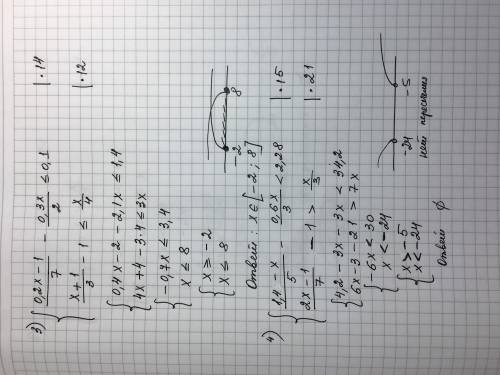 3) { (0,2x-1)/7 - 0,3x/2 ≤ 0,1 | · 14
{ (x+1)/3 - 1 ≤ x/4 | · 12
{ 0,4x - 2 - 2,1x ≤ 1,4
{ 4x + 4 - 3·4 ≤ 3x
{ -0,7x ≤ 3,4
{ x ≤ 8
{ x ≥ -2
{ x ≤ 8
-2 8
Ответ: x ∈ [-2; 8]
4) { (1,4 - x)/5 - 0,6x/3 < 2,28 | · 15
{ (2x-1)/7 - 1 > x/3 | · 21
{ 4,2 - 3x - 3x < 34,2
{ 6x - 3 - 21 > 7x
{ -6x < 30
{ x < -24
{ x > -5
{ x < -24
-24 -5
нет пересечения
Ответ ∅